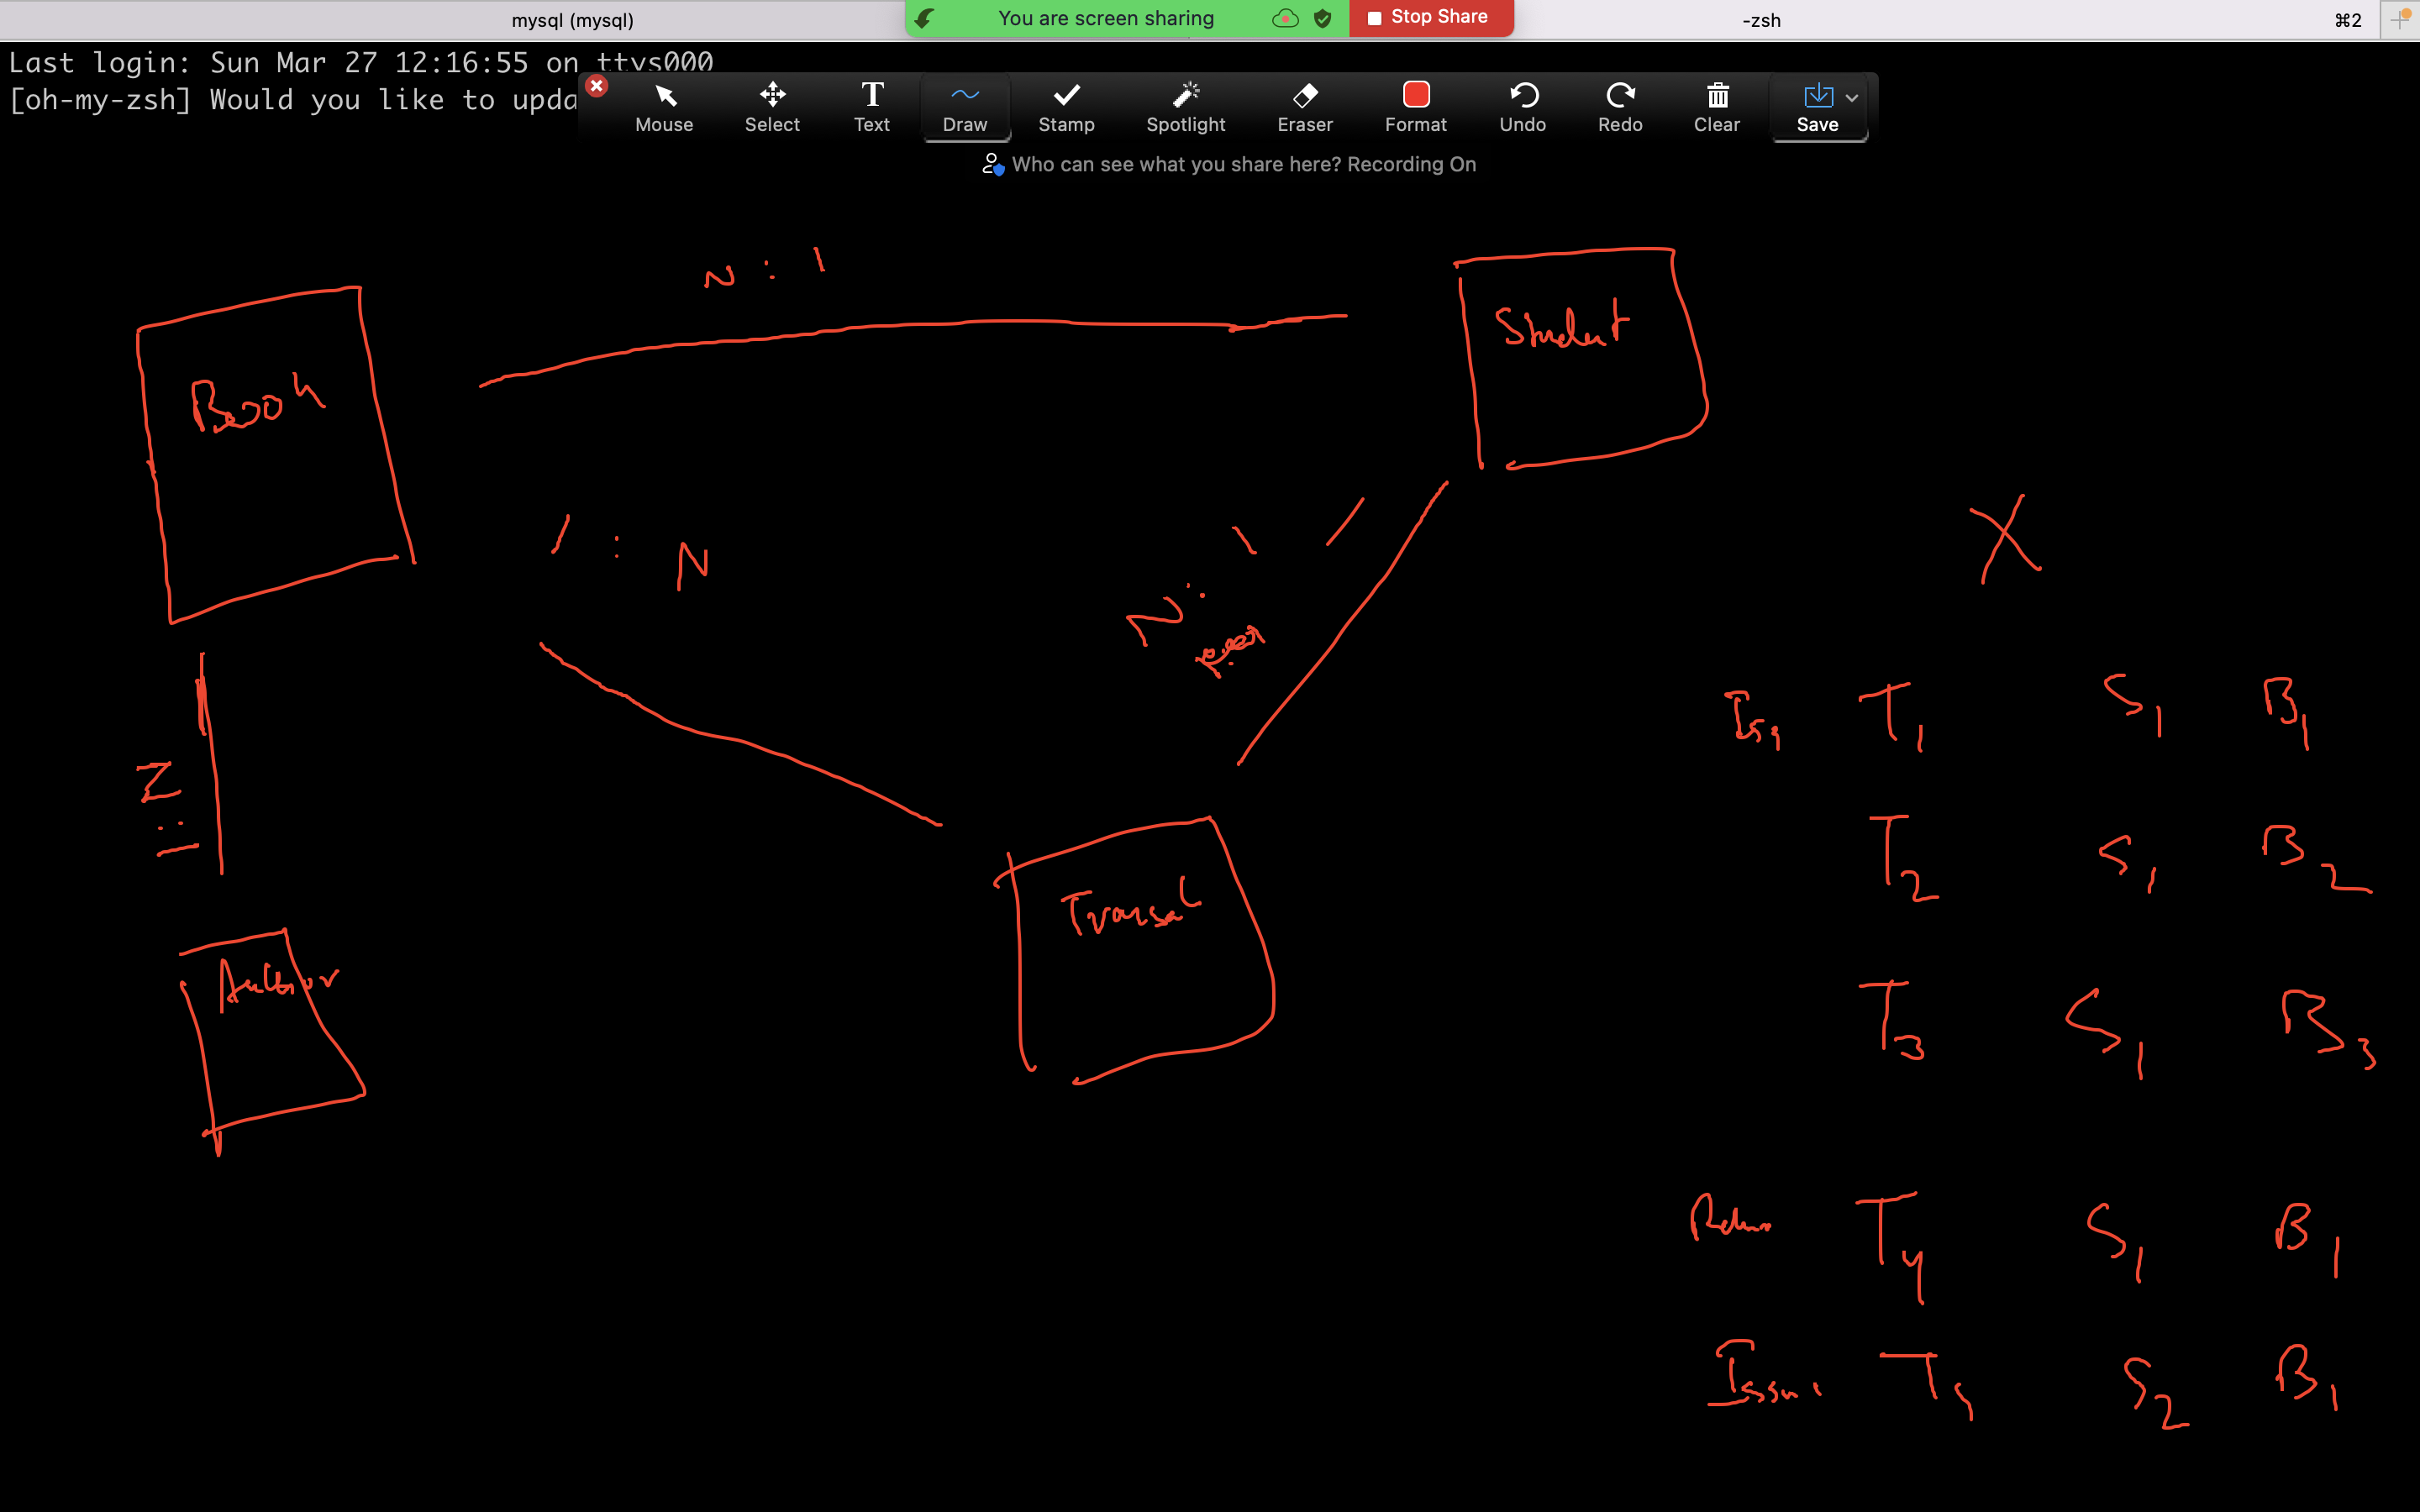 mysql (mysql)
You are screen sharing
Stop Share
-zsh
⌘2
Last login: Sun Mar 27 12:16:55 on ttys000
[oh-my-zsh] Would you like to upda
Mouse
Select
Text
Draw
Stamp
Spotlight
Eraser
Format
Undo
Redo
Clear
Save
Who can see what you share here? Recording On
N : 1
Student
Book
1 : N
N : 1
N : 1
Author
Transac
X
T1 S1 B1
T2 S1 B2
T3 S1 B3
T4 S1 B1
S2 B1